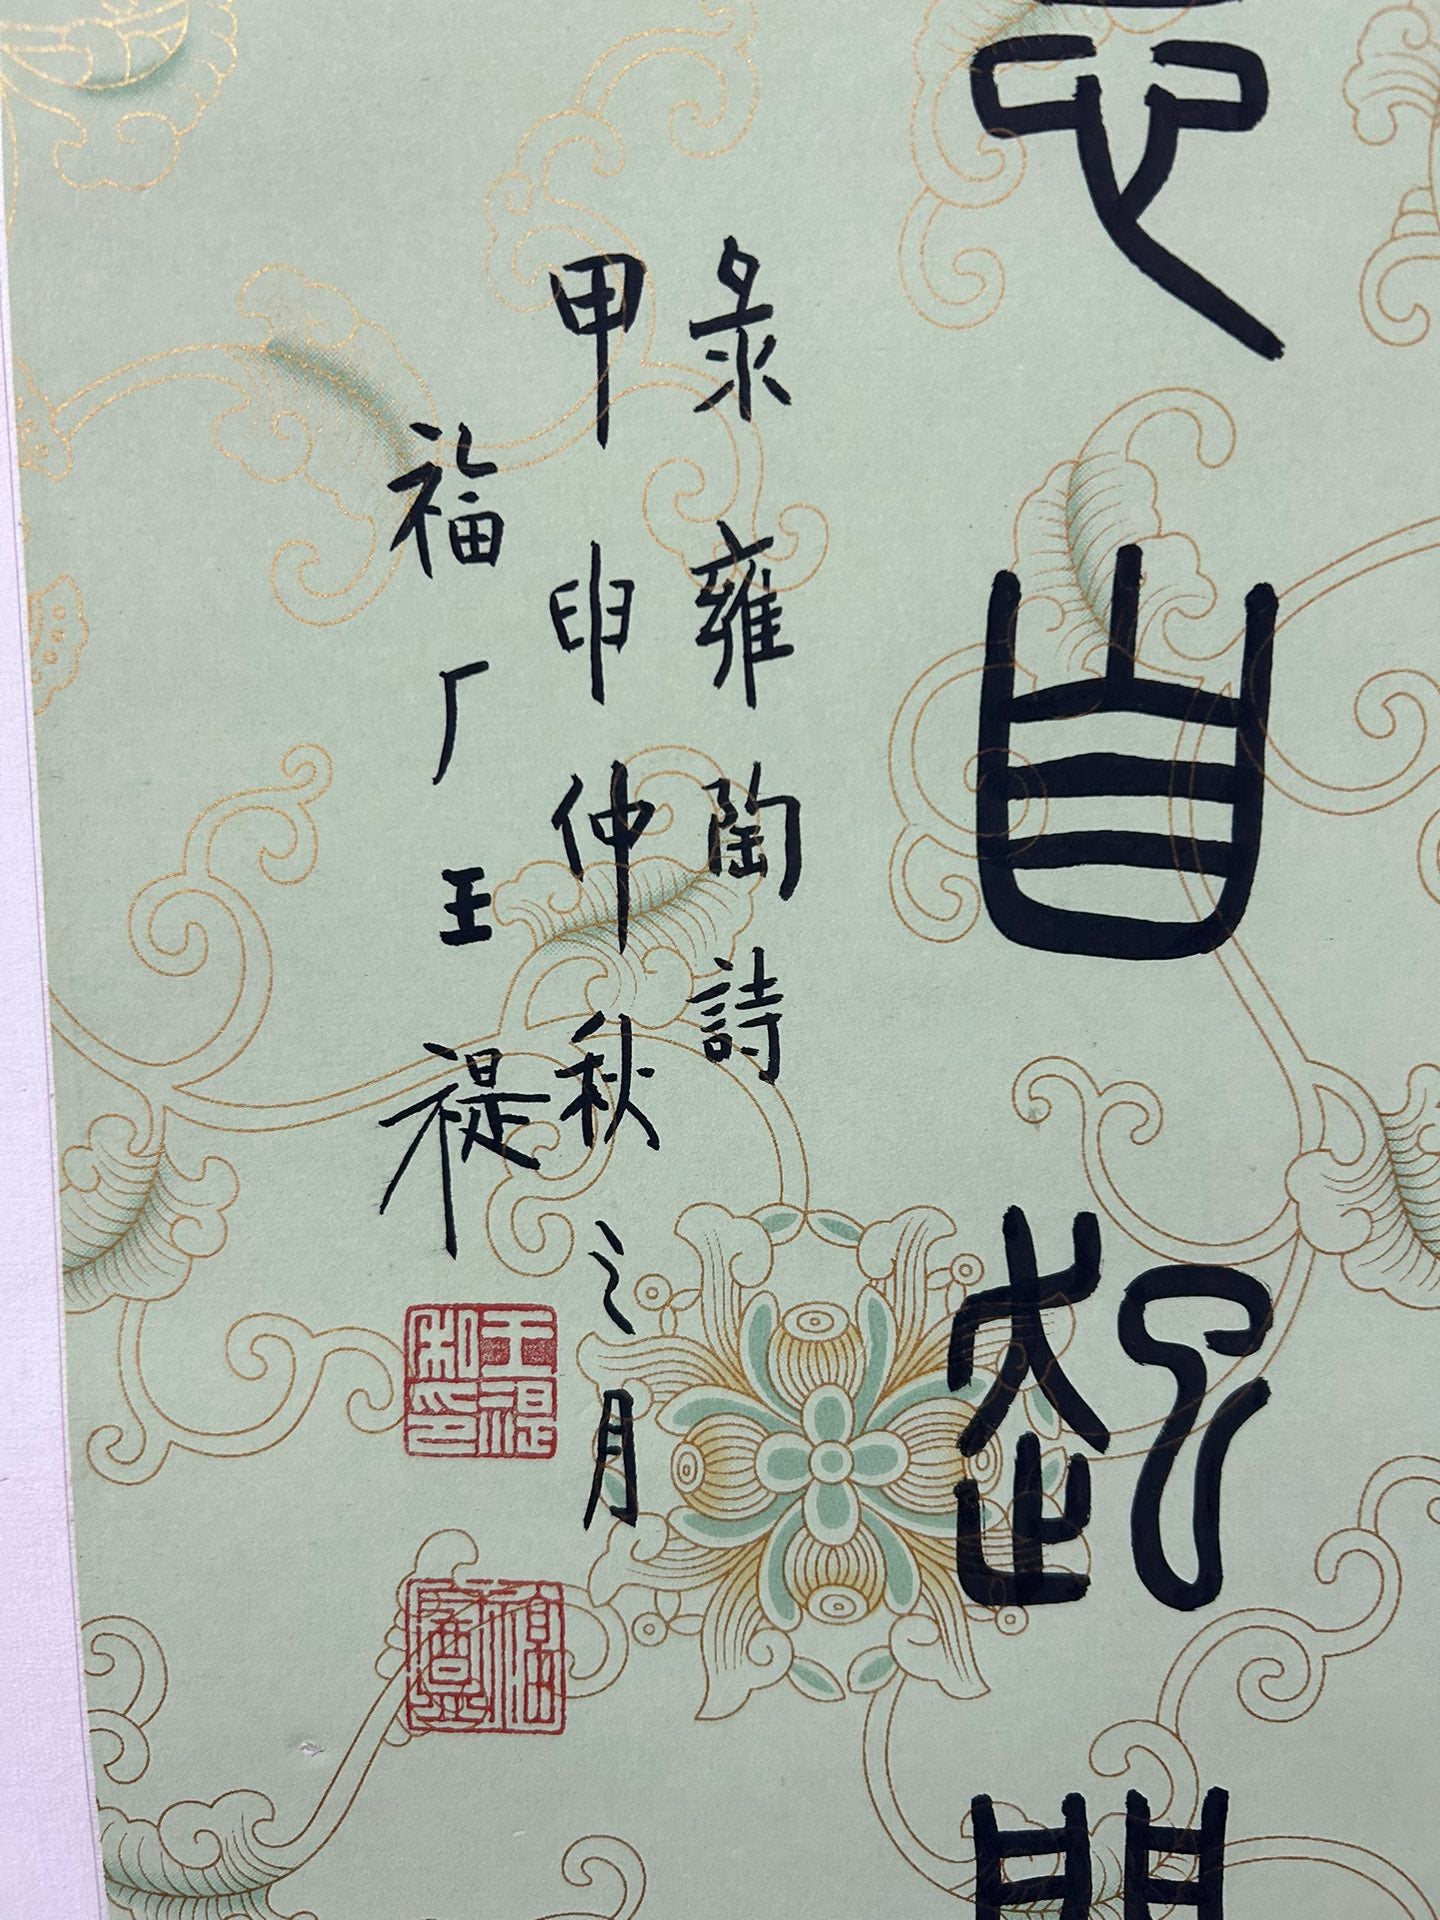 自起
彔雍陶詩
甲申仲秋之月
福厂王禔
王禔私印
福盦